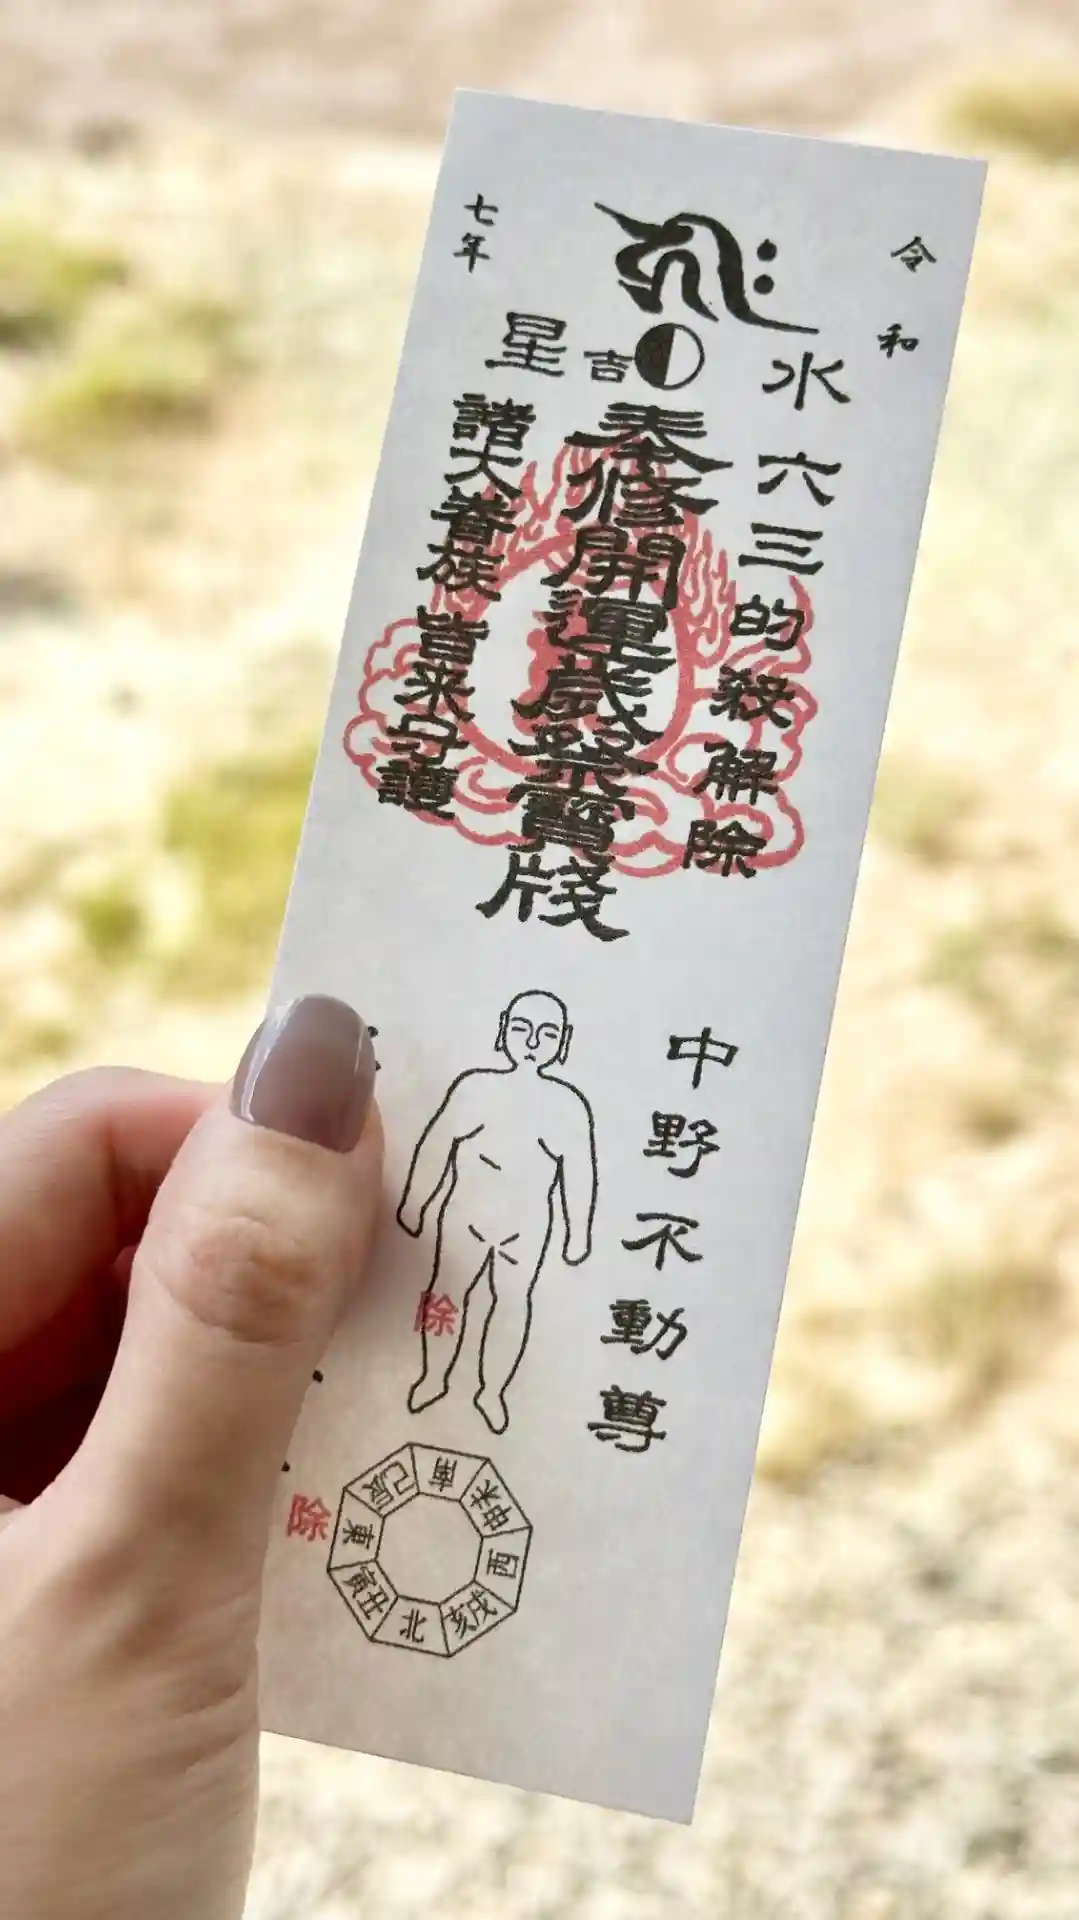 令和
七年
水
星
吉
六三的殺解除
奉修開運歳祭寶牋
諸大眷族皆来守護
中野不動尊
除
除
南
未申
西
戌亥
北
丑寅
東
辰巳